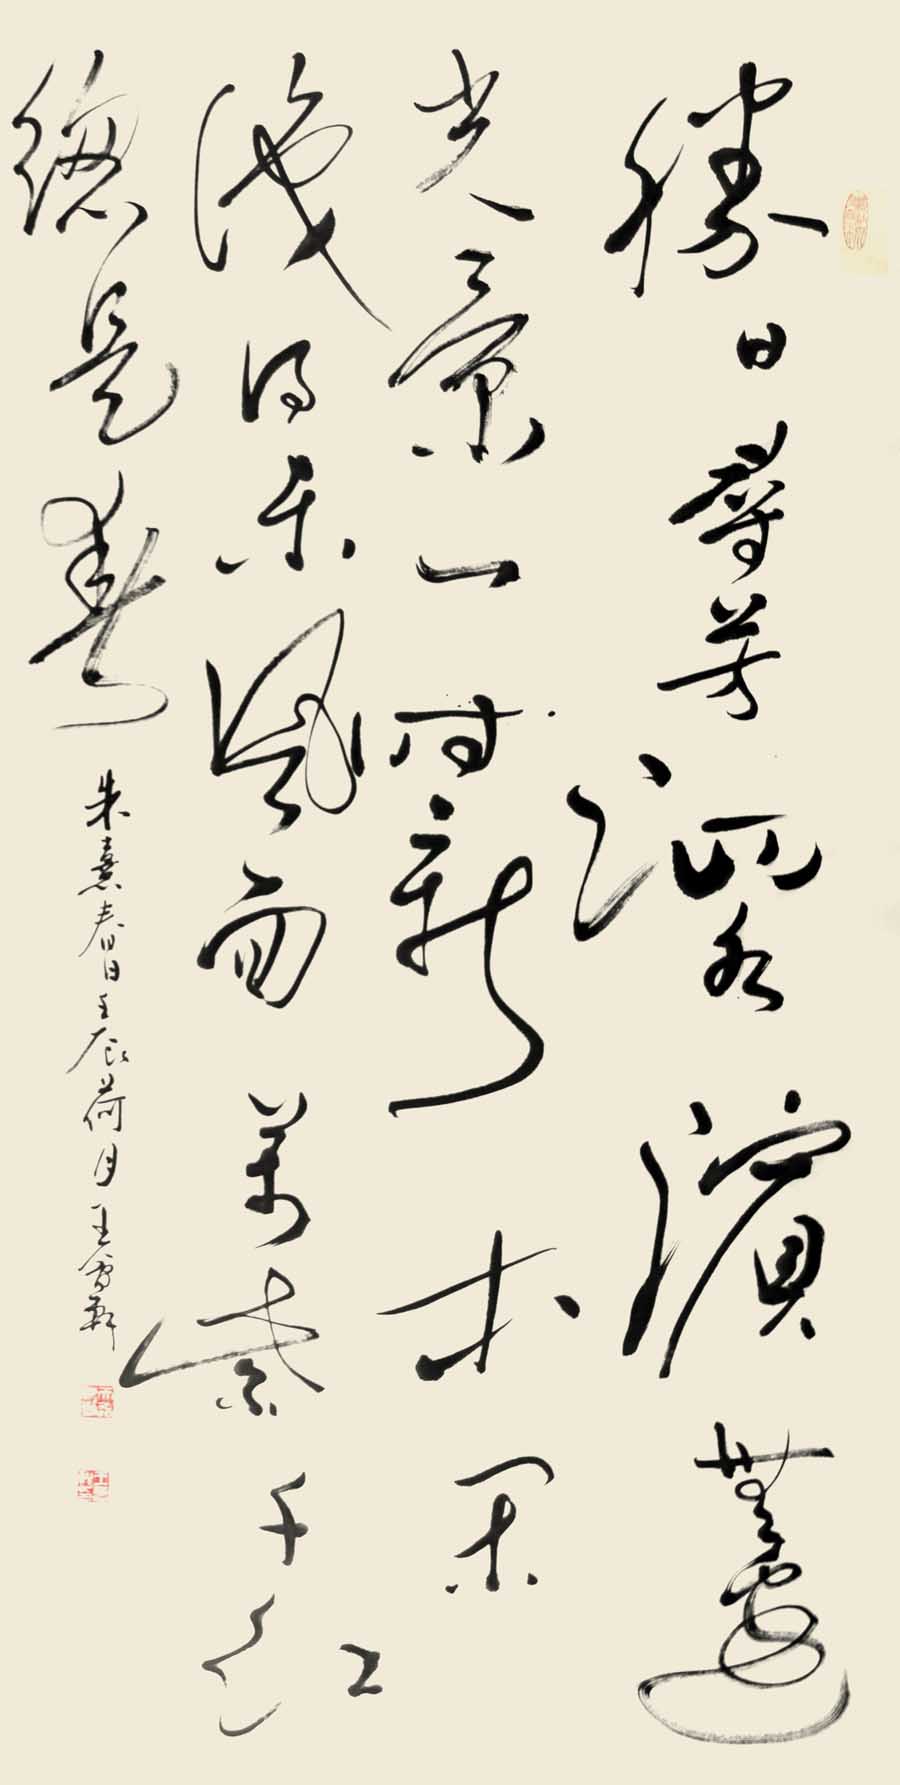 勝日尋芳泗水濱無邊
光景一時新等閑
識得東風面萬紫千紅
總是春
朱熹春日壬辰荷月王雪軒